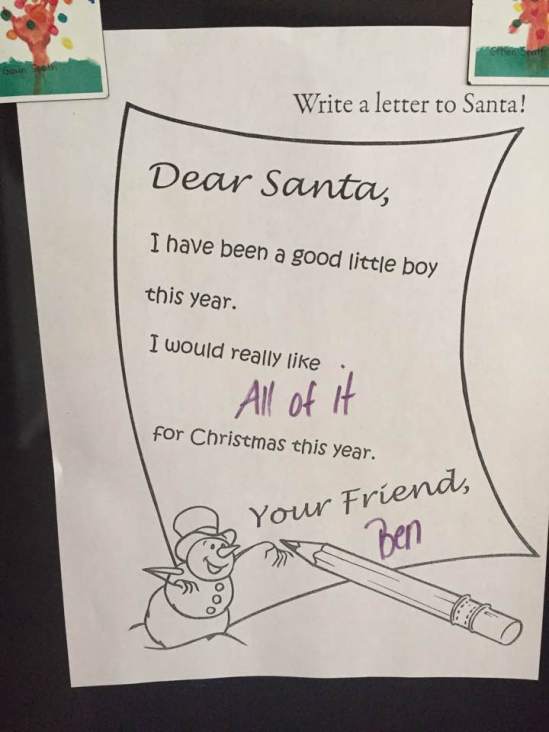 Write a letter to Santa!
Dear Santa,
I have been a good little boy
this year.
I would really like
All of it
for Christmas this year.
Your Friend,
Ben